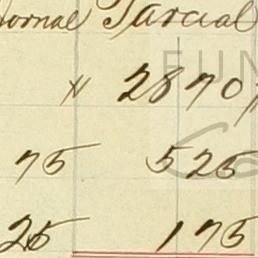 Jornal Parcial
" 2870
75 525
25 175